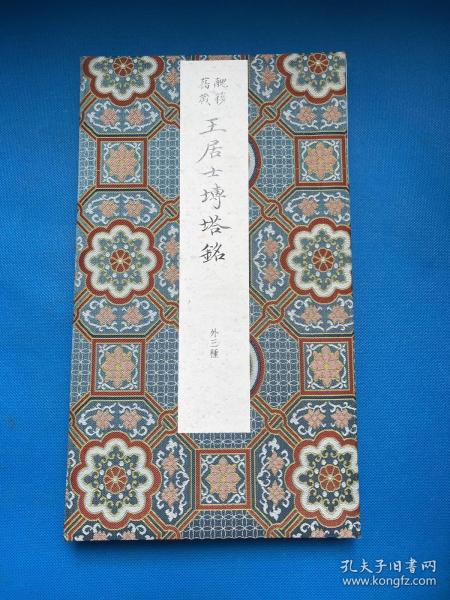 醜簃
舊藏
王居士塼塔銘
外三種
孔夫子旧书网
www.kongfz.com